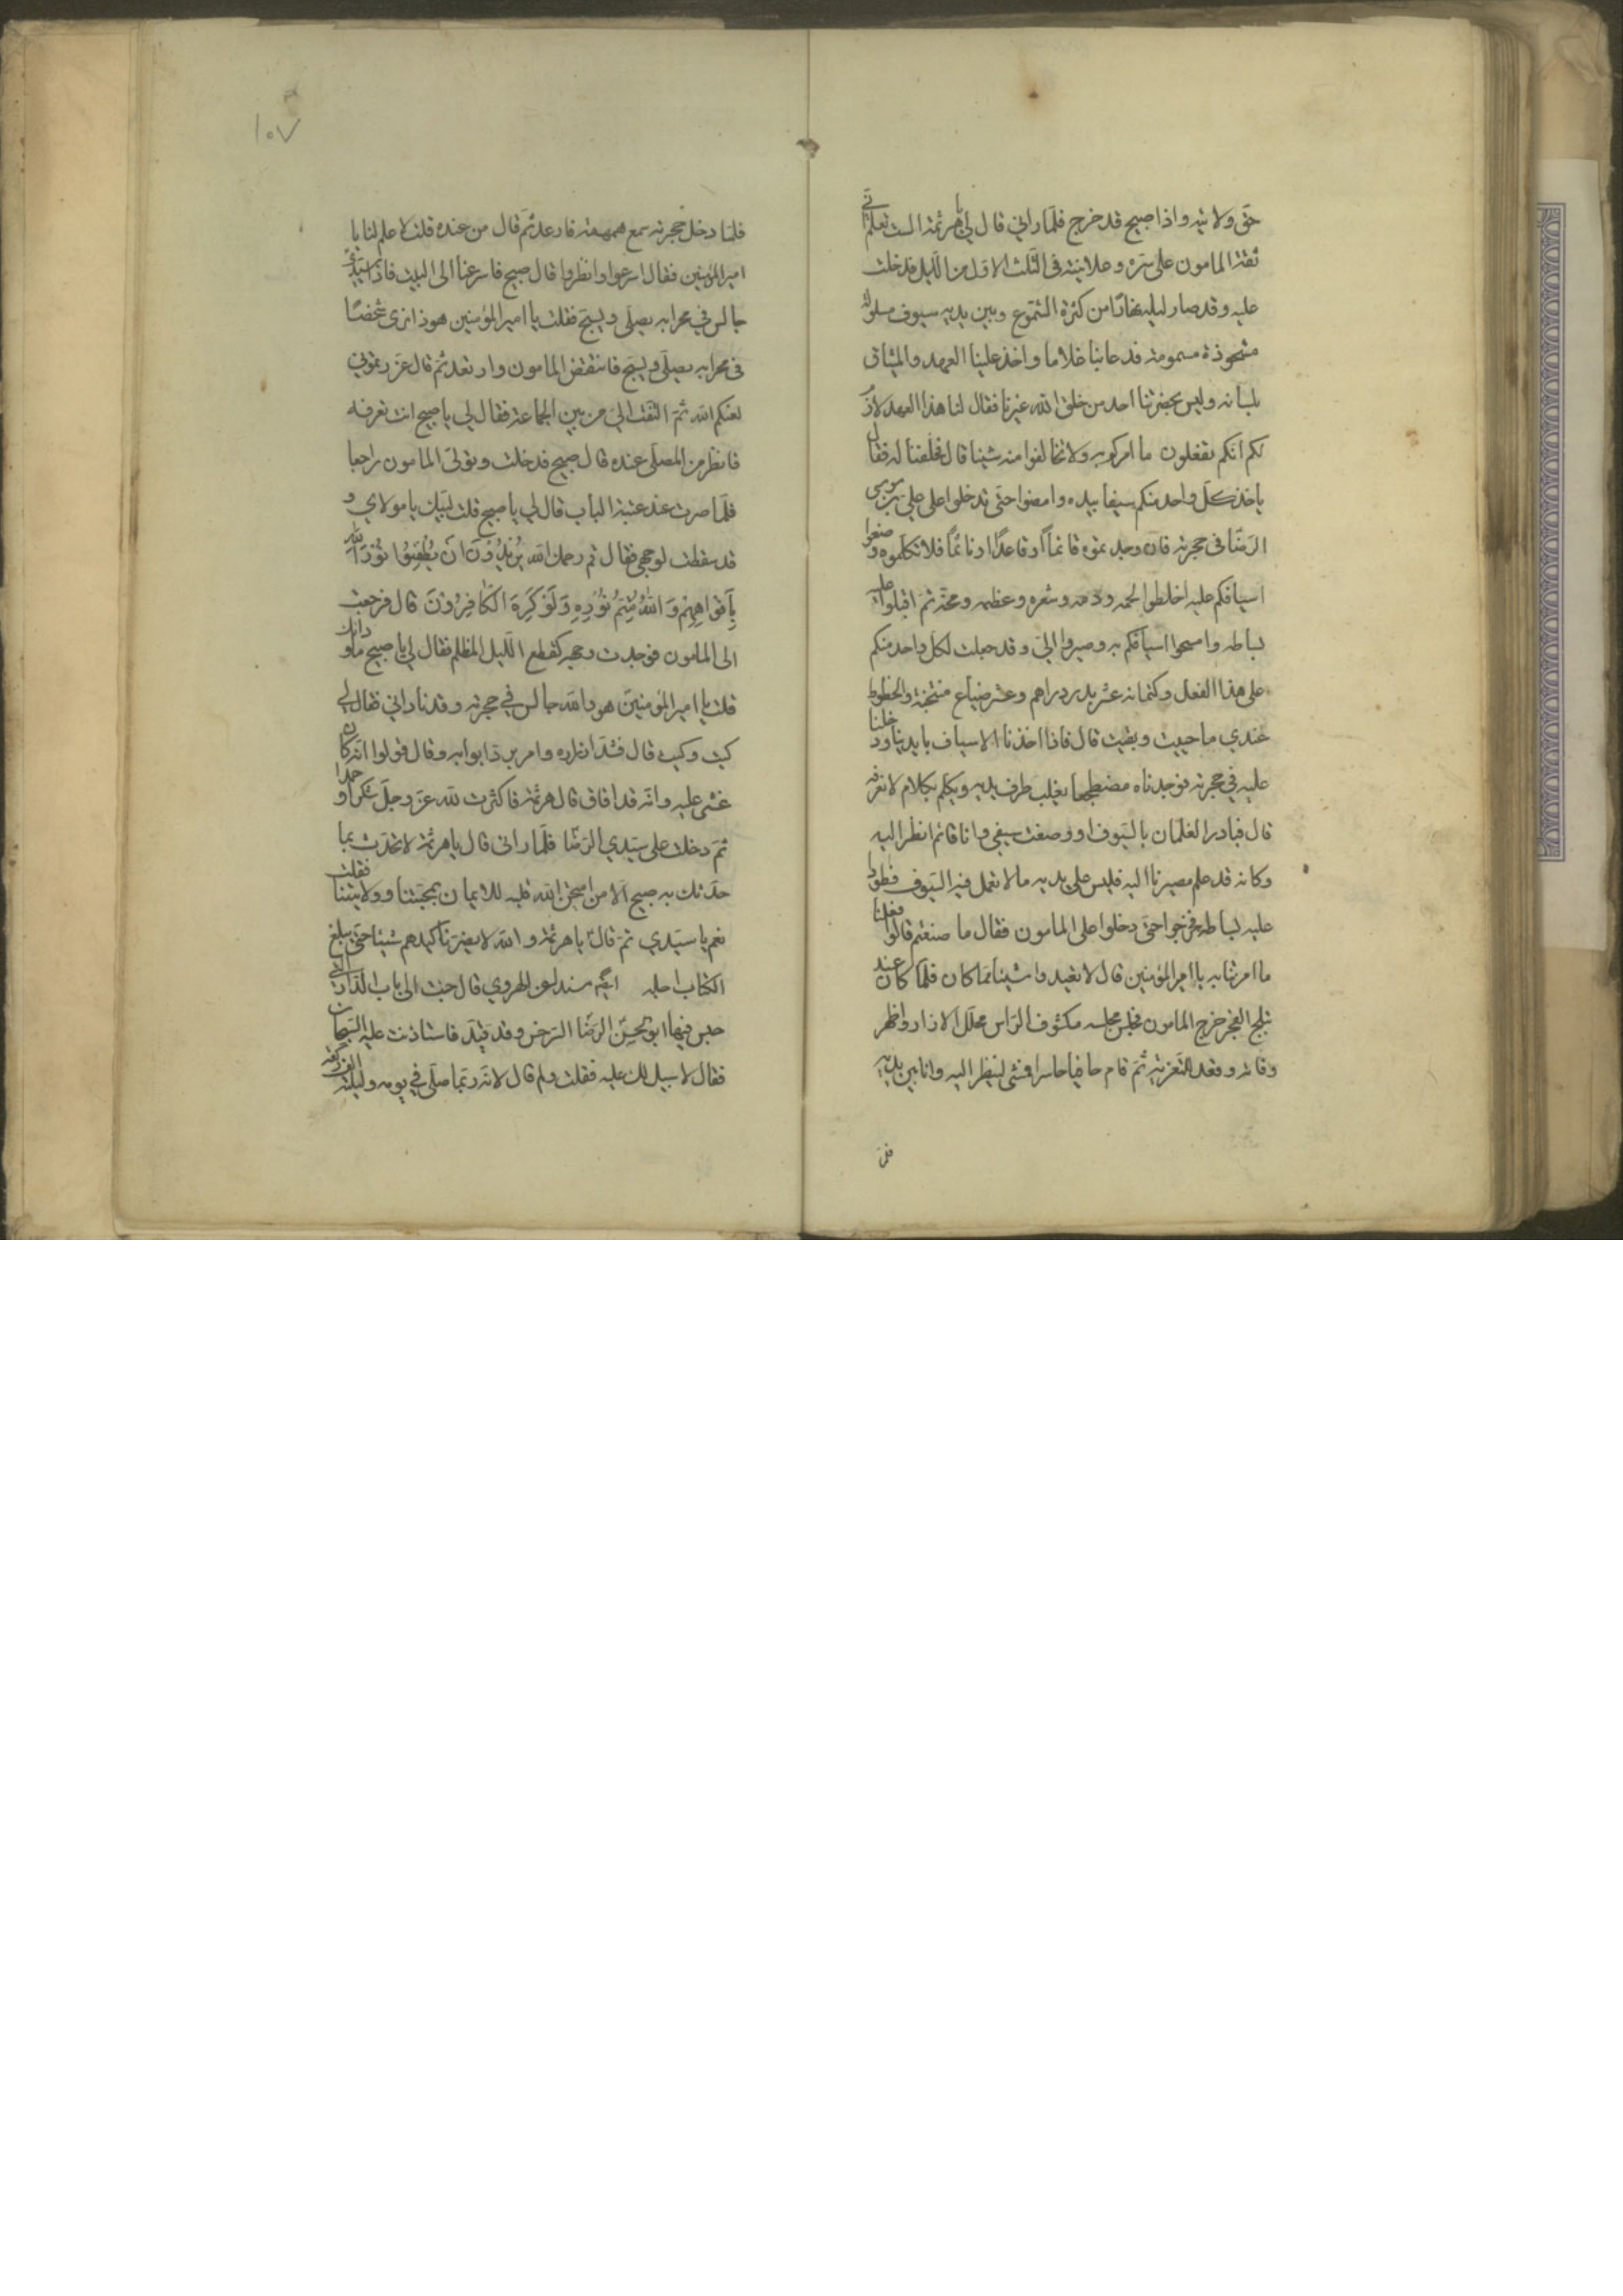 حق ولايته واذا صبيح قد خرج فلما راني قال لي يا هرثمة الست تعلم اني
ثقة المامون على سره وعلانيته في الثلث الاول من الليل فدخلت
عليه وقد صار ليله نهارا من كثرة الشموع وبين يديه سيوف مسلولة
مشحوذة مسمومة فدعا بنا غلاما واخذ علينا العهد والميثاق
بلسانه وليس بحضرتنا احد من خلق الله غيرنا فقال لنا هذا العهد لازم
لكم انكم تفعلون ما امركم به ولا تخالفوا منه شيئا قال فحلفنا له فقال
ياخذ كل واحد منكم سيفا بيده وامضوا حتى تدخلوا على علي بن موسى
الرضا في حجرته فان وجدتموه قائما او قاعدا او نائما فلا تكلموه وضعوا
اسيافكم عليه اخلطوا لحمه ودمه وشعره وعظمه ومخه ثم اقبلوا عليه
بساطه وامسحوا اسيافكم به وصيروا الي وقد جعلت لكل واحد منكم
على هذا الفعل وكتمانه عشر بدر دراهم وعشر ضياع منتجبة والحظوظ
عندي ما حييت وبقيت قال فاذا اخذنا الاسياف بايدينا ودخلنا
عليه في حجرته فوجدناه مضطجعا يقلب طرف يديه ويكلم بكلام لا نعرفه
قال فبادر الغلمان بالسيوف اووضعت سيفي وانا قائم انظر اليه
وكانه قد علم مصيرنا اليه فلبس على بدنه ما لا تعمل فيه السيوف فطووا
عليه بساطه فخرجوا حتى دخلوا على المامون فقال ما صنعتم قالوا فعلنا
ما امرتنا به يا امير المؤمنين قال لا تعيدوا شيئا مما كان فلما كان عند
تبلج الفجر خرج المامون فجلس مجلسه مكشوف الراس محلل الازار واظهر
وفاته وقعد للتعزية ثم قام حافيا حاسرا فمشى لينظر اليه وانا بين يديه
فلما
١٠٧
فلما دخل حجرته سمع همهمته فارعد ثم قال من عنده قلت لا علم لنا يا
امير المؤمنين فقال اسرعوا وانظروا قال صبيح فاسرعنا الى البيت فاذا سيدي ع
جالس في محرابه يصلي ويسبح فقلت يا امير المؤمنين هو ذا نرى شخصا
في محرابه يصلي ويسبح فانتفض المامون وارتعد ثم قال غررتموني
لعنكم الله ثم التفت الي من بين الجماعة فقال لي يا صبيح انت تعرفه
فانظر من المصلي عنده قال صبيح فدخلت وتولى المامون راجعا
فلما صرت عند عتبة الباب قال لي يا صبيح قلت لبيك يا مولاي و
قد سقطت لوجهي فقال قم رحمك الله يُرِيدُونَ اَنْ يُطْفِئُوا نُورَ اللهِ
بِاَفْوَاهِهِمْ وَاللهُ مُتِمُّ نُورِهِ وَلَوْ كَرِهَ الْكَافِرُونَ قال فرجعت
الى المامون فوجدت وجهه كقطع الليل المظلم فقال لي يا صبيح ما وراءك
قلت يا امير المؤمنين هو والله جالس في حجرته وقد ناداني فقال لي
كيت وكيت قال فشد ازراره وامر برد ابوابه وقال قولوا انه كان
غشي عليه وانه قد افاق قال هرثمة فاكثرت لله عز وجل شكرا وحمدا
ثم دخلت على سيدي الرضا فلما راني قال يا هرثمة لا تحدث بما
حدثك به صبيح الا من امتحن الله قلبه للايمان بمحبتنا وولايتنا فقلت
نعم يا سيدي ثم قال يا هرثمة والله لا يضرنا كيدهم شيئا حتى يبلغ
الكتاب اجله ايضا مسندا عن الهروي قال جئت الى باب الدار التي
حبس فيها ابو الحسن الرضا السرخس وقد قيد فاستاذنت عليه السجان
فقال لا سبيل لك عليه فقلت ولم قال لانه ربما صلى في يومه وليلته الف ركعة